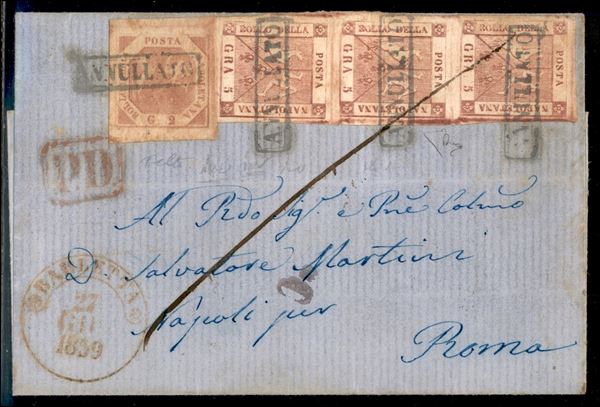 POSTA
G. 2
BOLLO DELLA
POSTA
NAPOLETANA
GRA 5
BOLLO DELLA
POSTA
NAPOLETANA
GRA 5
BOLLO DELLA
POSTA
NAPOLETANA
GRA 5
ANNULLATO
ANNULLATO
ANNULLATO
ANNULLATO
P.D
Al Rdo Sigr e Pñe Colmo
D. Salvatore Martini
Napoli per
Roma
BARLETTA
22
1859